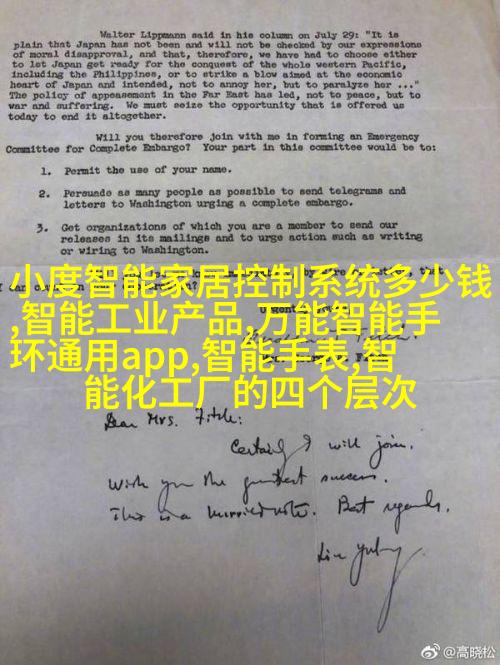 Walter Lippmann, said in his column on July 29: "It is
plain that Japan has not been and will not be checked by our expressions
of moral disapproval, and that, therefore, we have had to choose either
to let Japan get ready for the conquest of the whole western Pacific,
including the Philippines, or to strike a blow aimed at the economic
heart of Japan and intended, not to annoy her, but to paralyze her ..."
The policy of appeasement in the Far East has led, not to peace, but to
war and suffering. We must seize the opportunity that is offered us
today to end it altogether.
Will you therefore join with me in forming an Emergency
Committee for Complete Embargo? Your part in this committee would be to:
1. Permit the use of your name.
2. Persuade as many people as possible to send telegrams and
letters to Washington urging a complete embargo.
3. Get organizations of which you are a member to send our
releases in its mailings and to urge action such as writing
or wiring to Washington.
小度智能家居控制系统多少钱
,智能工业产品,万能智能手
环通用app,智能手表,智
能化工厂的四个层次
Dear Mrs. Fitch:
Certainly I will join.
Wish you the greatest success.
This is a hurried note. Best regards.
Lin Yutang
@高晓松